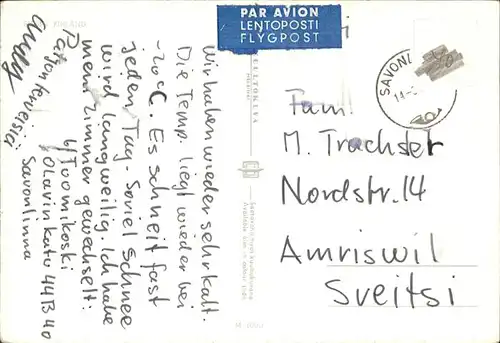 PAR AVION
LENTOPOSTI
FLYGPOST
SAVONL
Fam.
M. Trachsler
Nordstr. 14
Amriswil
Sveitsi
Wir haben wieder sehr kalt.
Die Temp. liegt wieder bei
-20°C. Es schneit fast
jeden Tag. Soviel Schnee
wird langweilig. Ich habe
mein Zimmer gewechselt:
b/Tuomikoski
Olavinkatu 44B40
Savonlinna